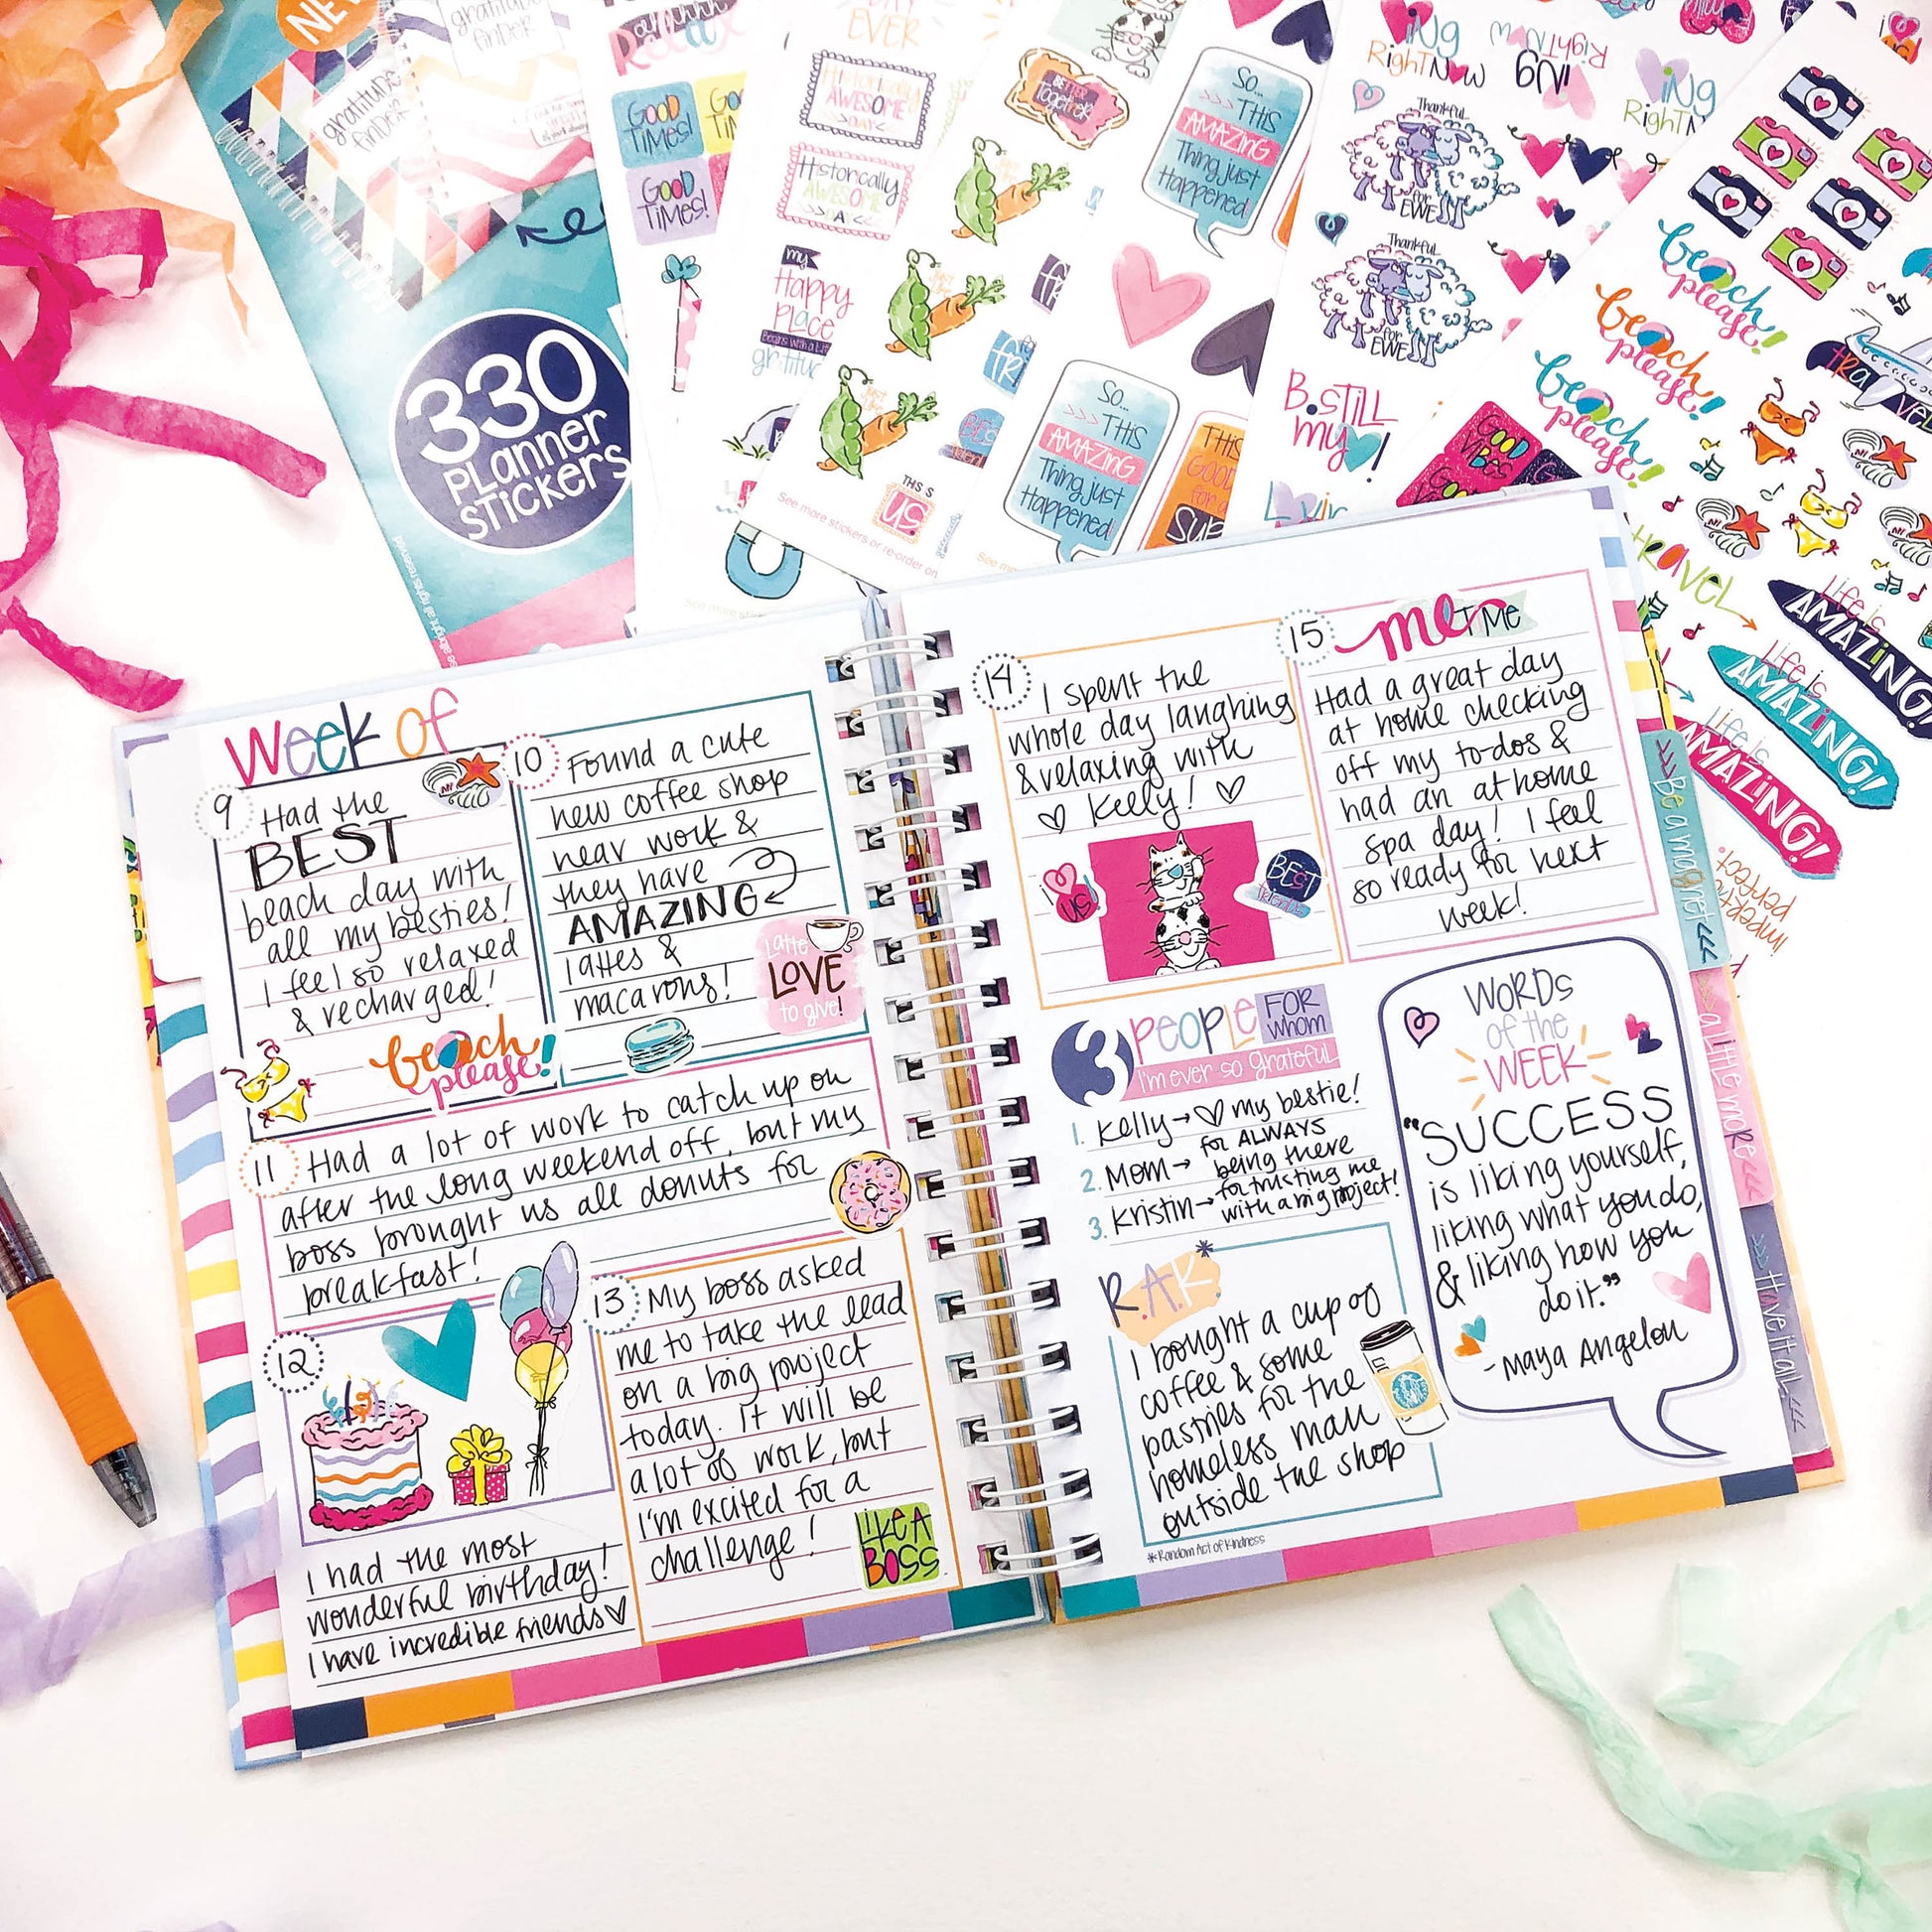 NEW
gratitude
finder
gratitude
finder
330
Planner
Stickers
all rights reserved
GOOD
TIMES!
GOOD
TIMES!
EVER
Historically
AWESOME
DAY
Historically
AWESOME
DAY
my
Happy
PLace
begins with a
THIS IS
US
See more stickers or re-order on
BETTER
Together
So...
>>> THIS
AMAZING
Thing just
Happened!
So...
>>> THIS
AMAZING
Thing just
Happened!
THIS
GOOD
for a
iNg
RigHT NOW
iNg
RigHT NOW
iNg
RigHT
Thankful
for
EWE
Thankful
for
EWE
B.STiLL
my
!
GOOD
VIBES
beach
please!
beach
please!
beach
please!
travel
life is
AMAZING!
life is
AMAZING!
life is
AMAZING!
imperfectly
perfect
Week of
9 Had the
BEST
beach day with
all my besties!
I feel so relaxed
& recharged!
beach
please!
10 Found a cute
new coffee shop
near work &
they have
AMAZING
lattes &
macarons!
Latte
LOVE
to give!
11 Had a lot of work to catch up on
after the long weekend off, but my
boss brought us all donuts for
breakfast!
12
I had the most
wonderful birthday!
I have incredible friends
13 My boss asked
me to take the lead
on a big project
today. It will be
a lot of work, but
I'm excited for a
challenge!
LIKE A
BOSS
14 I spent the
whole day laughing
& relaxing with
Kelly!
US
BEST
friends
15 me TIME
Had a great day
at home checking
off my to-dos &
had an at home
spa day! I feel
so ready for next
week!
3 PEOPLE FOR
whom
I'm ever so grateful
1. Kelly→ my bestie!
2. Mom→ for ALWAYS
being there
3. Kristin→ for trusting me
with a big project!
R.A.K*
I bought a cup of
coffee & some
pastries for the
homeless man
outside the shop
*Random Act of Kindness
WORDS
of the
WEEK
"SUCCESS
is liking yourself,
liking what you do,
& liking how you
do it."
-Maya Angelou
>>> Be a magnet >>>
a little more <<<
>>> Have it all <<<